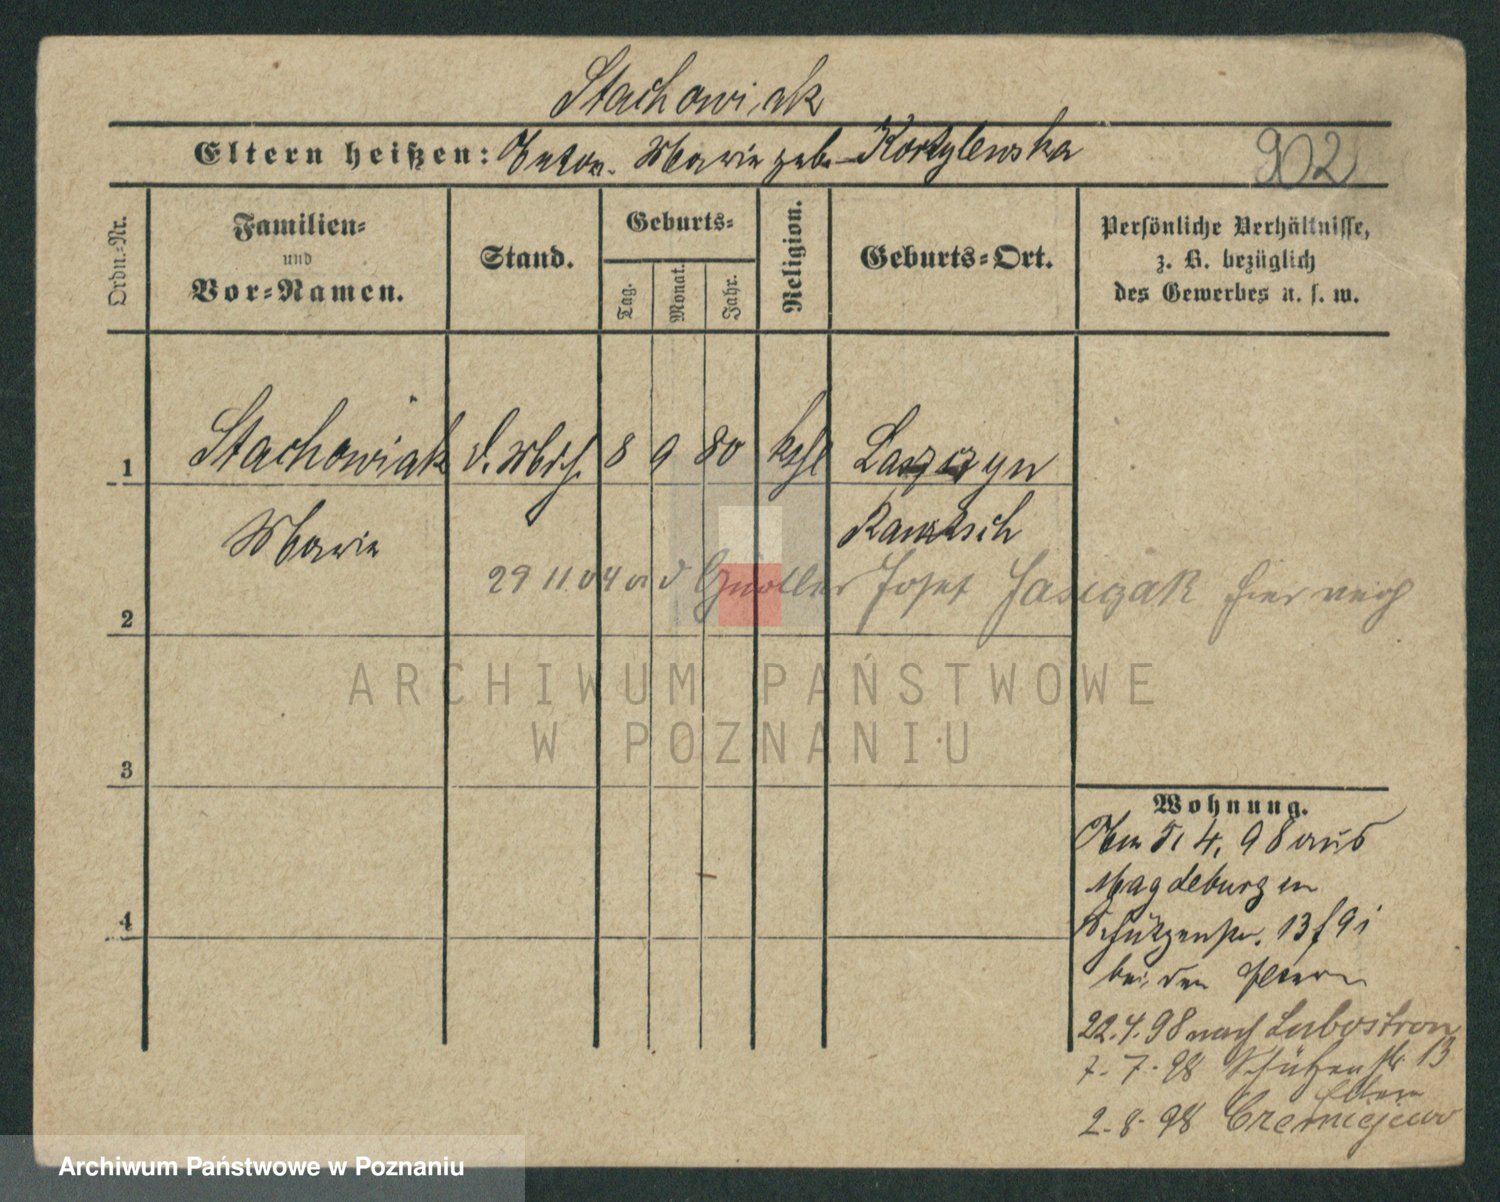 Stachowiak
Eltern heißen: Anton. Marie geb. Kortylewska
902
Ordn.-Nr.
Familien-
und
Vor-Namen.
Stand.
Geburts-
Tag.
Monat.
Jahr.
Religion.
Geburts-Ort.
Persönliche Verhältnisse,
z. B. bezüglich
des Gewerbes u. s. w.
1
Stachowiak
8
9
80
kth
Laszczyn
Marie
Rawitsch
29 11 04 Josef Jasiczak hier
2
3
4
Wohnung.
4. 98 aus
Magdeburg
Schützenstr. 13
bei den Eltern
22.4.98 nach Labostron
7. 7. 98 Schützenstr 13
Eltern
2. 8. 98 Czerniejewo
ARCHIWUM PAŃSTWOWE
W POZNANIU
Archiwum Państwowe w Poznaniu